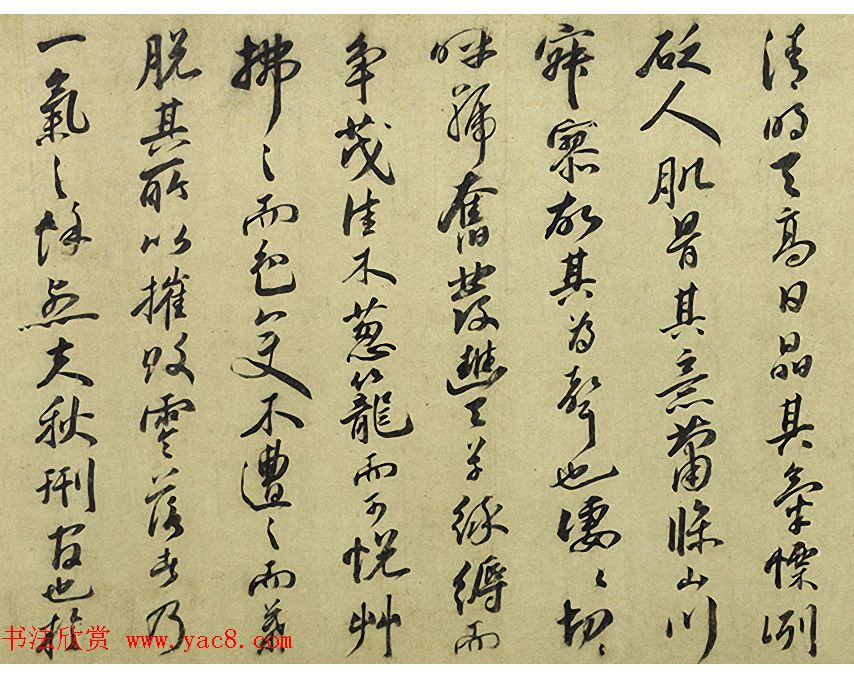 清明天高日晶其氣慄冽
砭人肌骨其意蕭條山川
寂寥故其為聲也凄々切々
呼號奮發草綠縟而
爭茂佳木葱籠而可悅艸
拂之而色變木遭之而葉
脱其所以摧敗零落者乃
一氣之餘烈夫秋刑官也於
书法欣赏 www.yac8.com